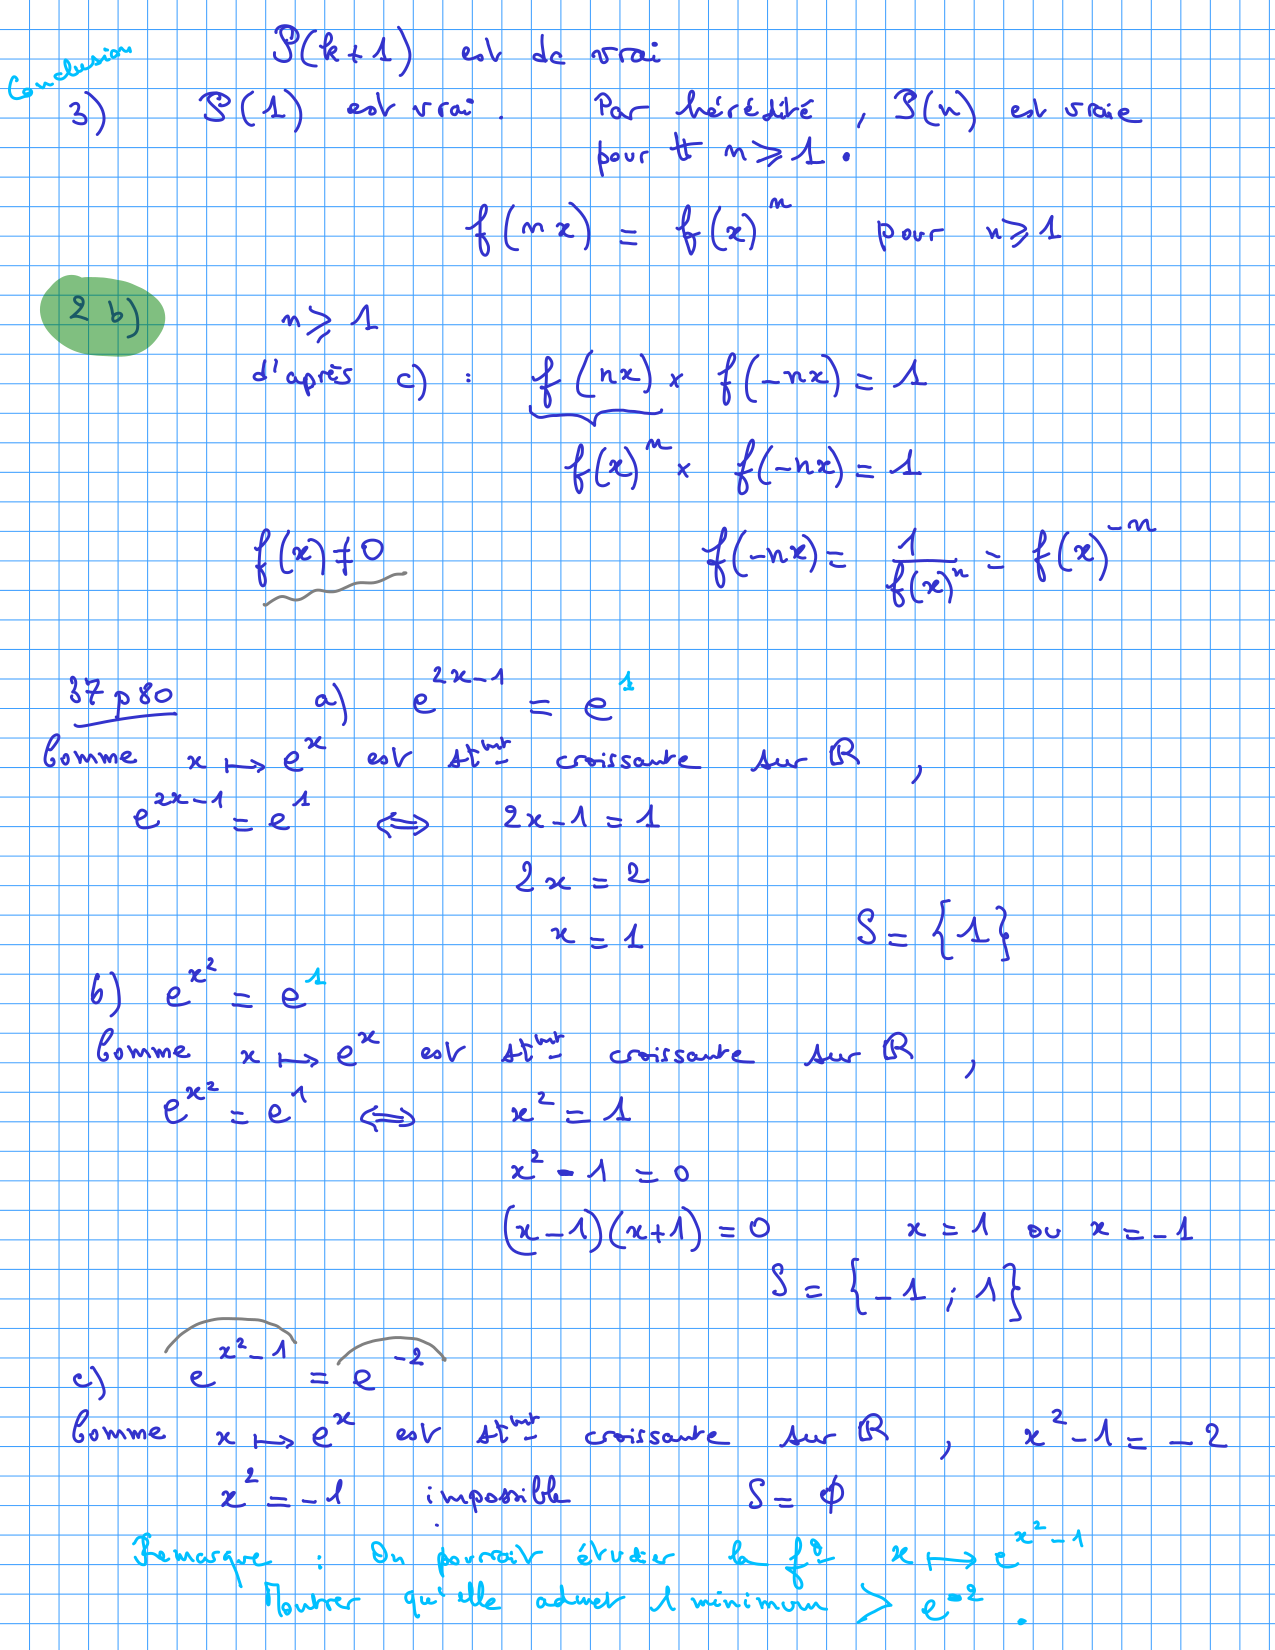 P(k+1) est dc vrai
Conclusion
3) P(1) est vrai. Par hérédité, P(n) est vraie
pour tt n ⩾ 1.
f(nx) = f(x)^n pour n ⩾ 1
2 b) n ⩾ 1
d'après c) : f(nx) × f(-nx) = 1
f(x)^n × f(-nx) = 1
f(x) ≠ 0 f(-nx) = 1/f(x)^n = f(x)^-n
37 p 80 a) e^(2x-1) = e^1
Comme x ↦ e^x est st^mt croissante sur ℝ,
e^(2x-1) = e^1 ⇔ 2x-1 = 1
2x = 2
x = 1 S = {1}
b) e^(x²) = e^1
Comme x ↦ e^x est st^mt croissante sur ℝ,
e^(x²) = e^1 ⇔ x² = 1
x² - 1 = 0
(x-1)(x+1) = 0 x = 1 ou x = -1
S = {-1 ; 1}
c) e^(x²-1) = e^-2
Comme x ↦ e^x est st^mt croissante sur ℝ, x²-1 = -2
x² = -1 impossible S = ∅
Remarque : On pourrait étudier la f° x ↦ e^(x²-1)
Montrer qu'elle admet 1 minimum > e^-2.